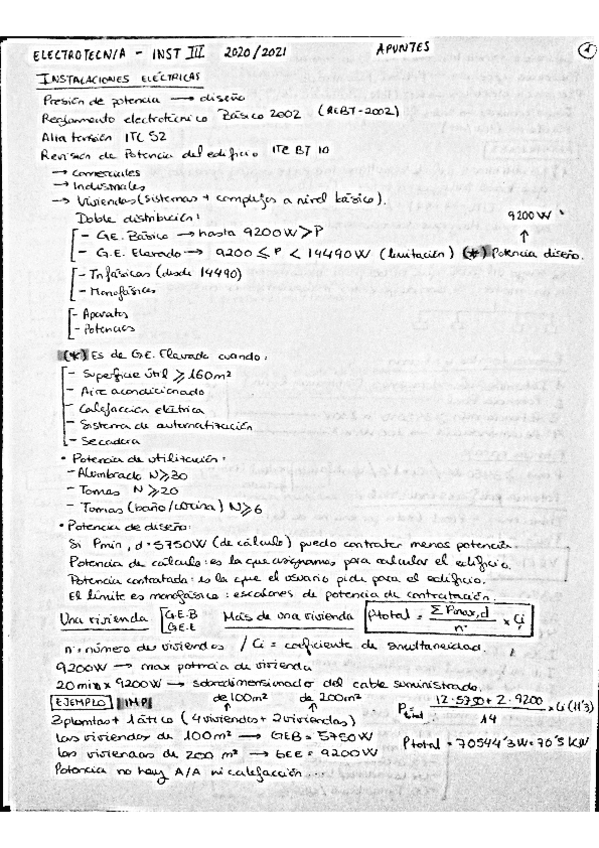 ELECTROTECNIA - INST III 2020/2021 APUNTES 1
INSTALACIONES ELÉCTRICAS
Presión de potencia → diseño
Reglamento electrotécnico Básico 2002 (REBT-2002)
Alta tensión ITC 52
Revisión de Potencia del edificio ITC BT 10
→ comerciales
→ Industriales
→ Viviendas (sistemas + complejos a nivel básico).
Doble distribución:
- G.E. Básico → hasta 9200W > P
- G.E. Elevado → 9200 ≤ P < 14490W (limitación) (*) Potencia diseño.
↑
9200W
- Trifásicas (desde 14490)
- Monofásicas
- Aparatos
- Potencias
(*) Es de G.E. Elevado cuando:
- Superficie útil ≥ 160m²
- Aire acondicionado
- Calefacción elétrica
- Sistema de automatización
- Secadora
• Potencia de utilización:
- Alumbrado N ≥ 30
- Tomas N ≥ 20
- Tomas (baño/cocina) N ≥ 6
• Potencia de diseño:
Si Pmin, d. 5750W (de cálculo) puedo contratar menos potencia.
Potencia de cálculo: es la que asignamos para calcular el edificio.
Potencia contratada: es la que el usuario pide para el edificio.
El límite es monofásico: escalones de potencia de contratación.
Una vivienda [G.E.B G.E.E Más de una vivienda Ptotal = Σ Pmax,d / n x Ci
n: número de viviendas / Ci = coeficiente de simultaneidad.
9200W → max potencia de vivienda
20 min x 9200W → sobredimensionador del cable suministrado.
EJEMPLO IMP de 100m² de 200m²
3 plantas + 1 ático (4 viviendas + 2 viviendas)
las viviendas de 100m² → GEB = 5750W
las viviendas de 200 m² → GEE = 9200W
Potencia no hay A/A ni calefacción ...
Ptotal = 12·5750 + 2·9200 / 14 x Ci (11'3)
Ptotal = 70544'3W = 70'5 KW